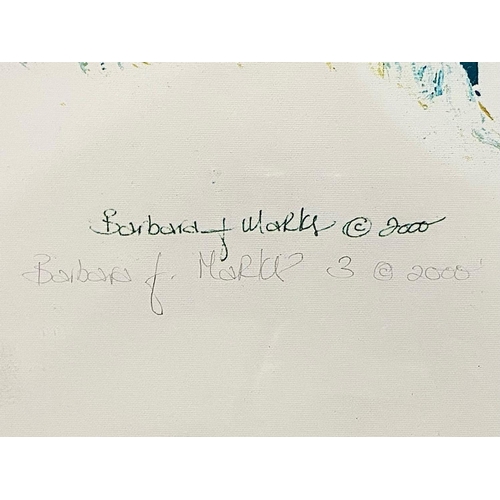 Barbara J Marks © 2000
Barbara J. Marks 3 © 2000